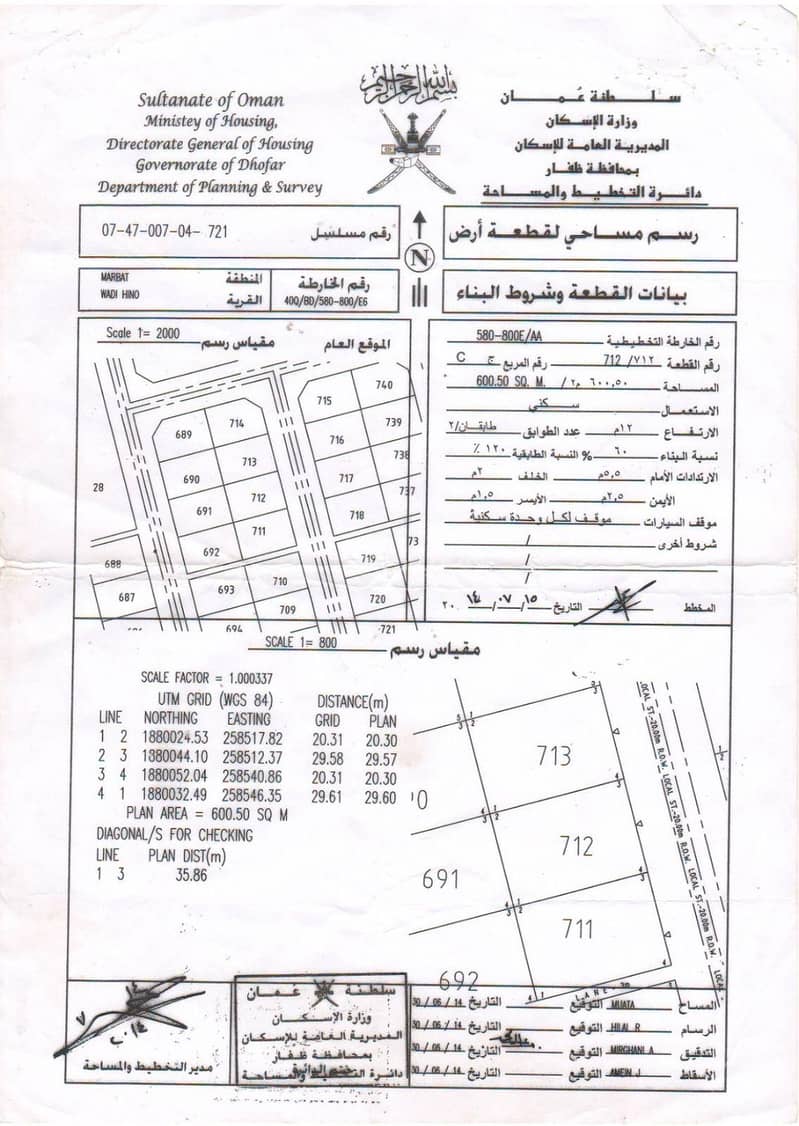 بسم الله الرحمن الرحيم
Sultanate of Oman
Ministey of Housing,
Directorate General of Housing
Governorate of Dhofar
Department of Planning & Survey
سلطنة عُمان
وزارة الإسكان
المديرية العامة للإسكان
بمحافظة ظفار
دائرة التخطيط والمساحة
07-47-007-04- 721 رقم مسلسل
N
رسم مساحي لقطعة أرض
MARBAT المنطقة
WADI HINO القرية
رقم الخارطة
40Q/BD/580-800/E6
بيانات القطعة وشروط البناء
Scale 1= 2000 مقياس رسم
الموقع العام
740
715
714
689
739
716
738
713
690
717
737
28
712
691
718
711
73
692
719
688
710
693
687
720
709
694
721
رقم الخارطة التخطيطية 580-800E/AA
رقم القطعة ٧١٢/ 712 رقم المربع ج C
المساحة ٦٠٠,٥٠ م٢ / 600.50 SQ. M.
الاستعمال سكني
الارتفاع ١٢م عدد الطوابق طابقان/٢
نسبة البناء ٦٠ % النسبة الطابقية ١٢٠ ٪
الارتدادات الأمام ٥,٥م الخلف ٢م
الأيمن ٢,٥م الأيسر ١,٥م
موقف السيارات موقف لكل وحدة سكنية
شروط أخرى /
/
المخطط التاريخ ١٥/ ٠٧/ ١٤ ٢٠
SCALE 1= 800 مقياس رسم
SCALE FACTOR = 1.000337
UTM GRID (WGS 84) DISTANCE(m)
LINE NORTHING EASTING GRID PLAN
1 2 1880024.53 258517.82 20.31 20.30
2 3 1880044.10 258512.37 29.58 29.57
3 4 1880052.04 258540.86 20.31 20.30
4 1 1880032.49 258546.35 29.61 29.60
PLAN AREA = 600.50 SQ M
DIAGONAL/S FOR CHECKING
LINE PLAN DIST(m)
1 3 35.86
713
712
691
711
692
LOCAL ST.-20.00m R.O.W. LOCAL ST.-20.00m R.O.W. LOCAL ST.-20.00m R.O.W. LOCAL
LANE
١٤
٧
٢٠١٤
مدير التخطيط والمساحة
سلطنة عمان
وزارة الإسكان
المديرية العامة للإسكان
بمحافظة ظفار
دائرة التخطيط والمساحة
المساح MUATA التوقيع التاريخ 30/06/14
الرسام HILAL R التوقيع التاريخ 30/06/14
التدقيق MIRGHANI A التوقيع التاريخ 30/06/14
الأسقاط AMEIN J التوقيع التاريخ 30/06/14